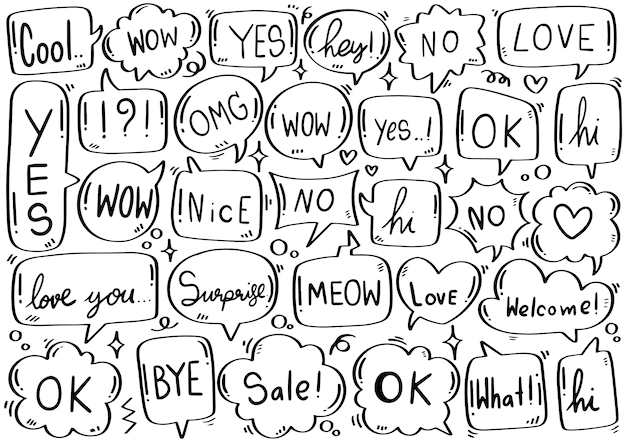 Cool..
WOW
YES
hey!!
NO
LOVE
YES
!?!
OMG
WOW
yes..!
OK
hi
WOW
NiCE
NO
hi
NO
love you...
Surprise
MEOW
LOVE
Welcome!
OK
BYE
Sale!
OK
What!
hi